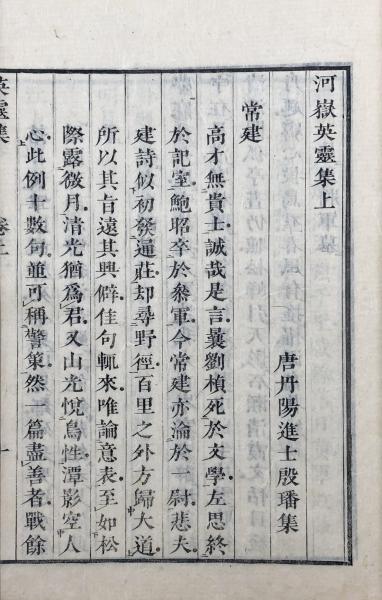 河嶽英靈集上
唐丹陽進士殷璠集
常建
高才無貴士誠哉是言曩劉楨死於文學左思終
於記室鮑昭卒於參軍今常建亦淪於一尉悲夫
建詩似初發通莊却尋野徑百里之外方歸大道
所以其旨遠其興僻佳句輒來唯論意表至如松
際露微月清光猶爲君又山光悅鳥性潭影空人
心此例十數句並可稱警策然一篇盡善者戰餘
英靈集 卷上 一